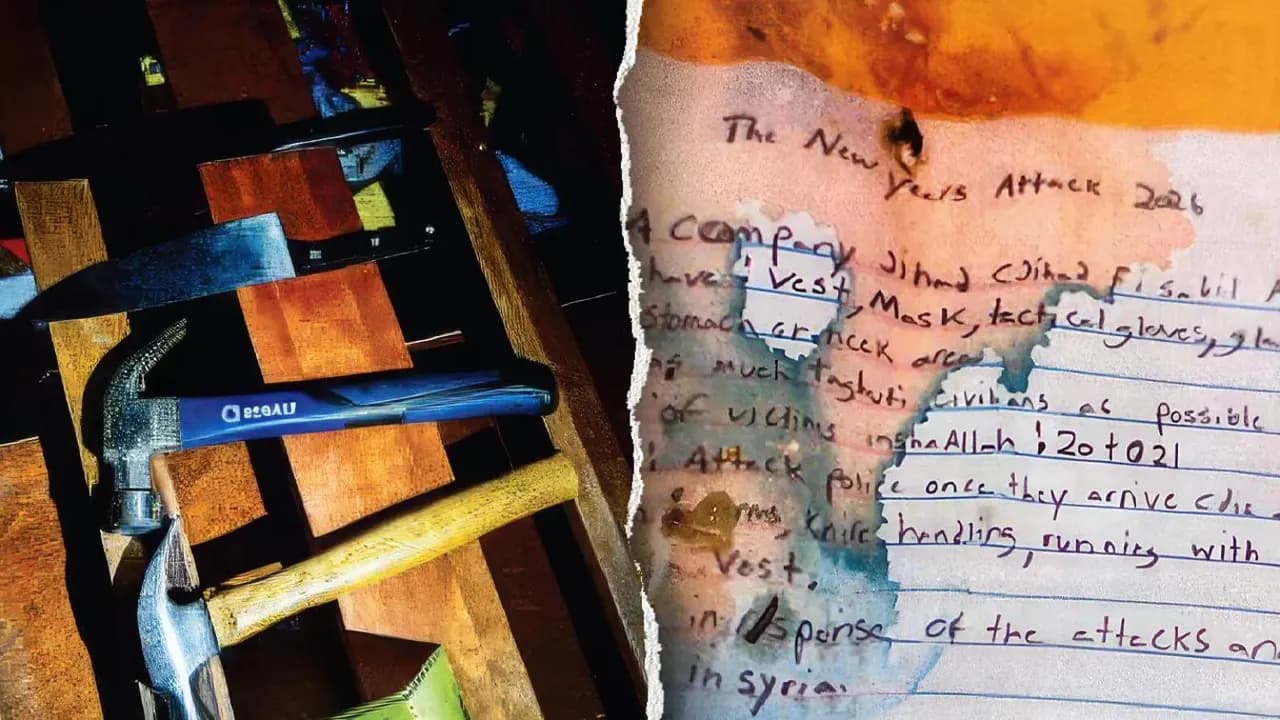 The New Years Attack 2026
A Company Jihad (Jihad Fi sabil
have 1 Vest, Mask, tactical gloves,
stomach or neck area
much Taghuti civilians as possible
of victims inshaAllah! 20 to 21
Attack police once they arrive
Knife handling, running with
Vest.
in response of the attacks an
in syria.